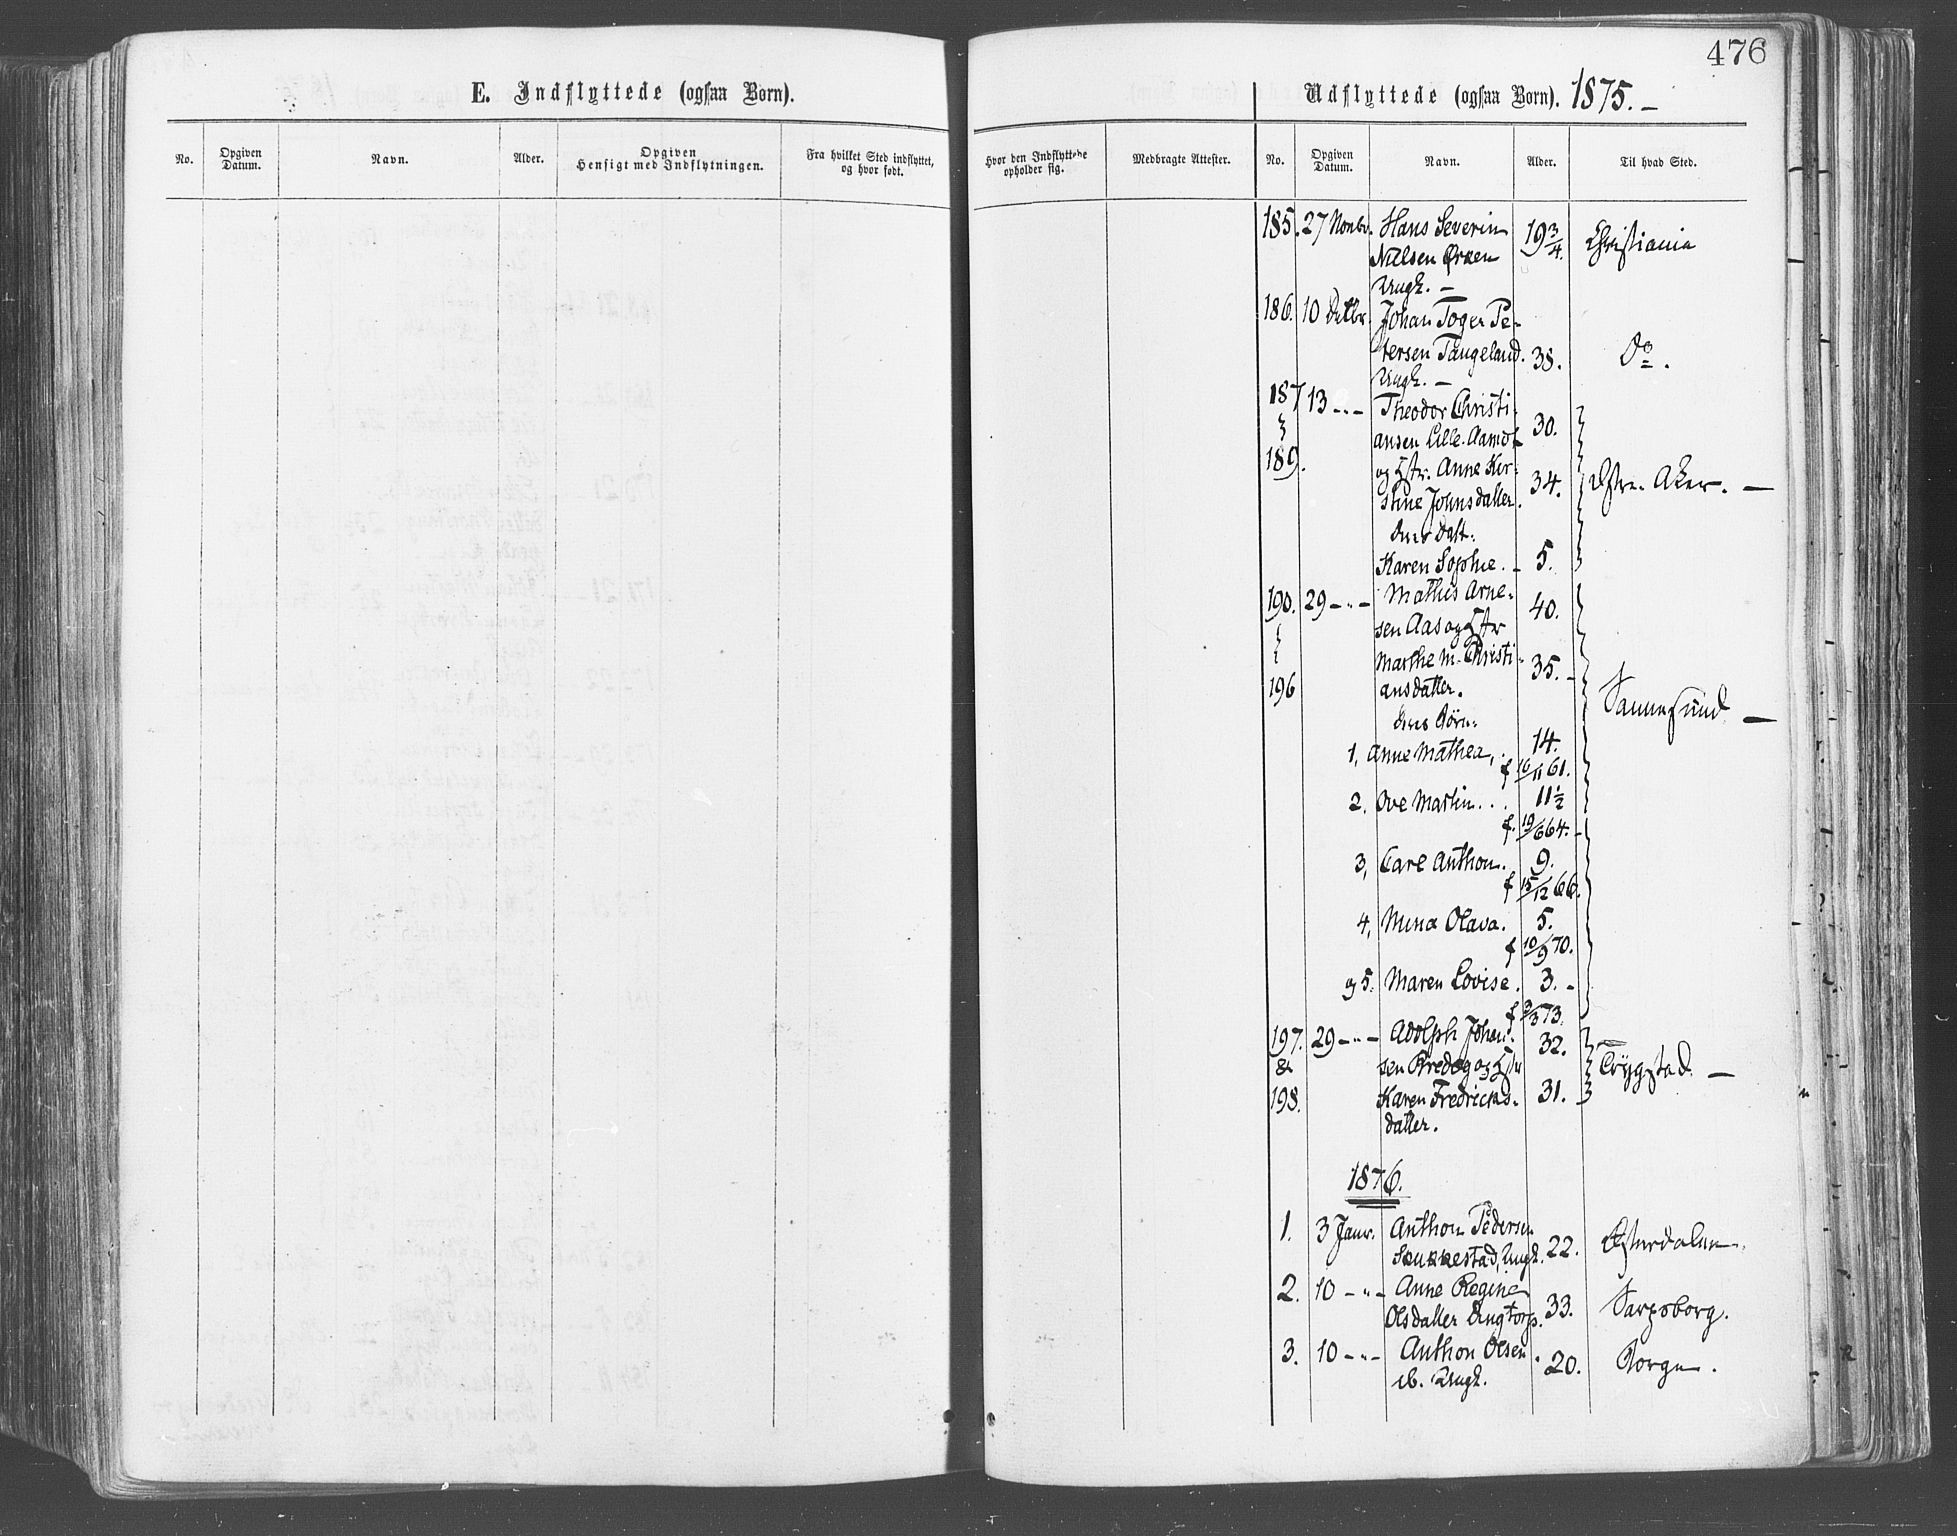 476
E. Indflyttede (ogsaa Børn).
Udflyttede (ogsaa Børn). 1875. –
No. Opgiven Datum. Navn. Alder. Opgiven Hensigt med Indflytningen. Fra hvilket Sted indflyttet, og hvor født. Hvor den Indflyttede opholder sig. Medbragte Attester. No. Opgiven Datum. Navn. Alder. Til hvad Sted.
185. 27 Novbr. Hans Severin 19 3/4. Christiania
Nilsen
Ungk. –
186. 10 Decbr. Johan Toger Pe-
tersen Tangeland. 38. Do.
Ungk. –
187 13 – " – Theodor Christi-
ansen Lille. 30.
189. og Hstr. Anne Ker-
stine Johnsdatter. 34. Østre Aker. –
deres Datt.
Karen Sophie. – 5.
190. 29 – " – Mathis Arne-
sen Aas og Hstr 40.
Marthe M. Christi-
196 ansdatter. 35. –
deres Børn: Sannesund –
1, Anne Mathea, . 14.
f 16/11 61.
2. Ove Martin . . . 11 1/2
f. 19/6 64. –
3, Carl Anthon. 9.
f 15/12 66.
4, Mina Olava. 5.
f 10/9 70.
og 5. Maren Lovise. 3. –
f 3/3 73.
197. 29 – " – Adolph Johan-
& sen og Hstr 32. Trygstad. –
198. Karen Fredriks- 31.
datter.
1876.
1. 3 Janr. Anthon Pedersen
Skukkestad, Ungk. 22. Østerdalen.
2. 10 – " – Anne Regine
Olsdatter Ungtorp. 33. Sarpsborg.
3. 10 – " – Anthon Olsen . 20. Borge.
ib. Ungk.